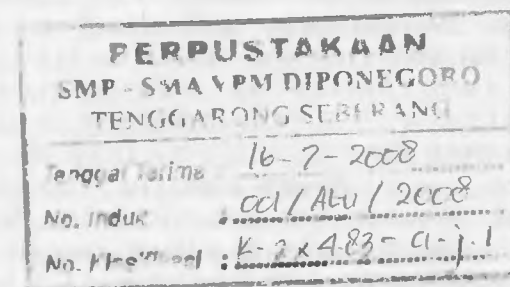 PERPUSTAKAAN
SMP - SMA YPM DIPONEGORO
TENGGARONG SEBERANG
Tanggal Terima 16-7-2008
No. Induk : 001/ALU/2008
No. Klasifikasi : K-2x4.83-a-j.1